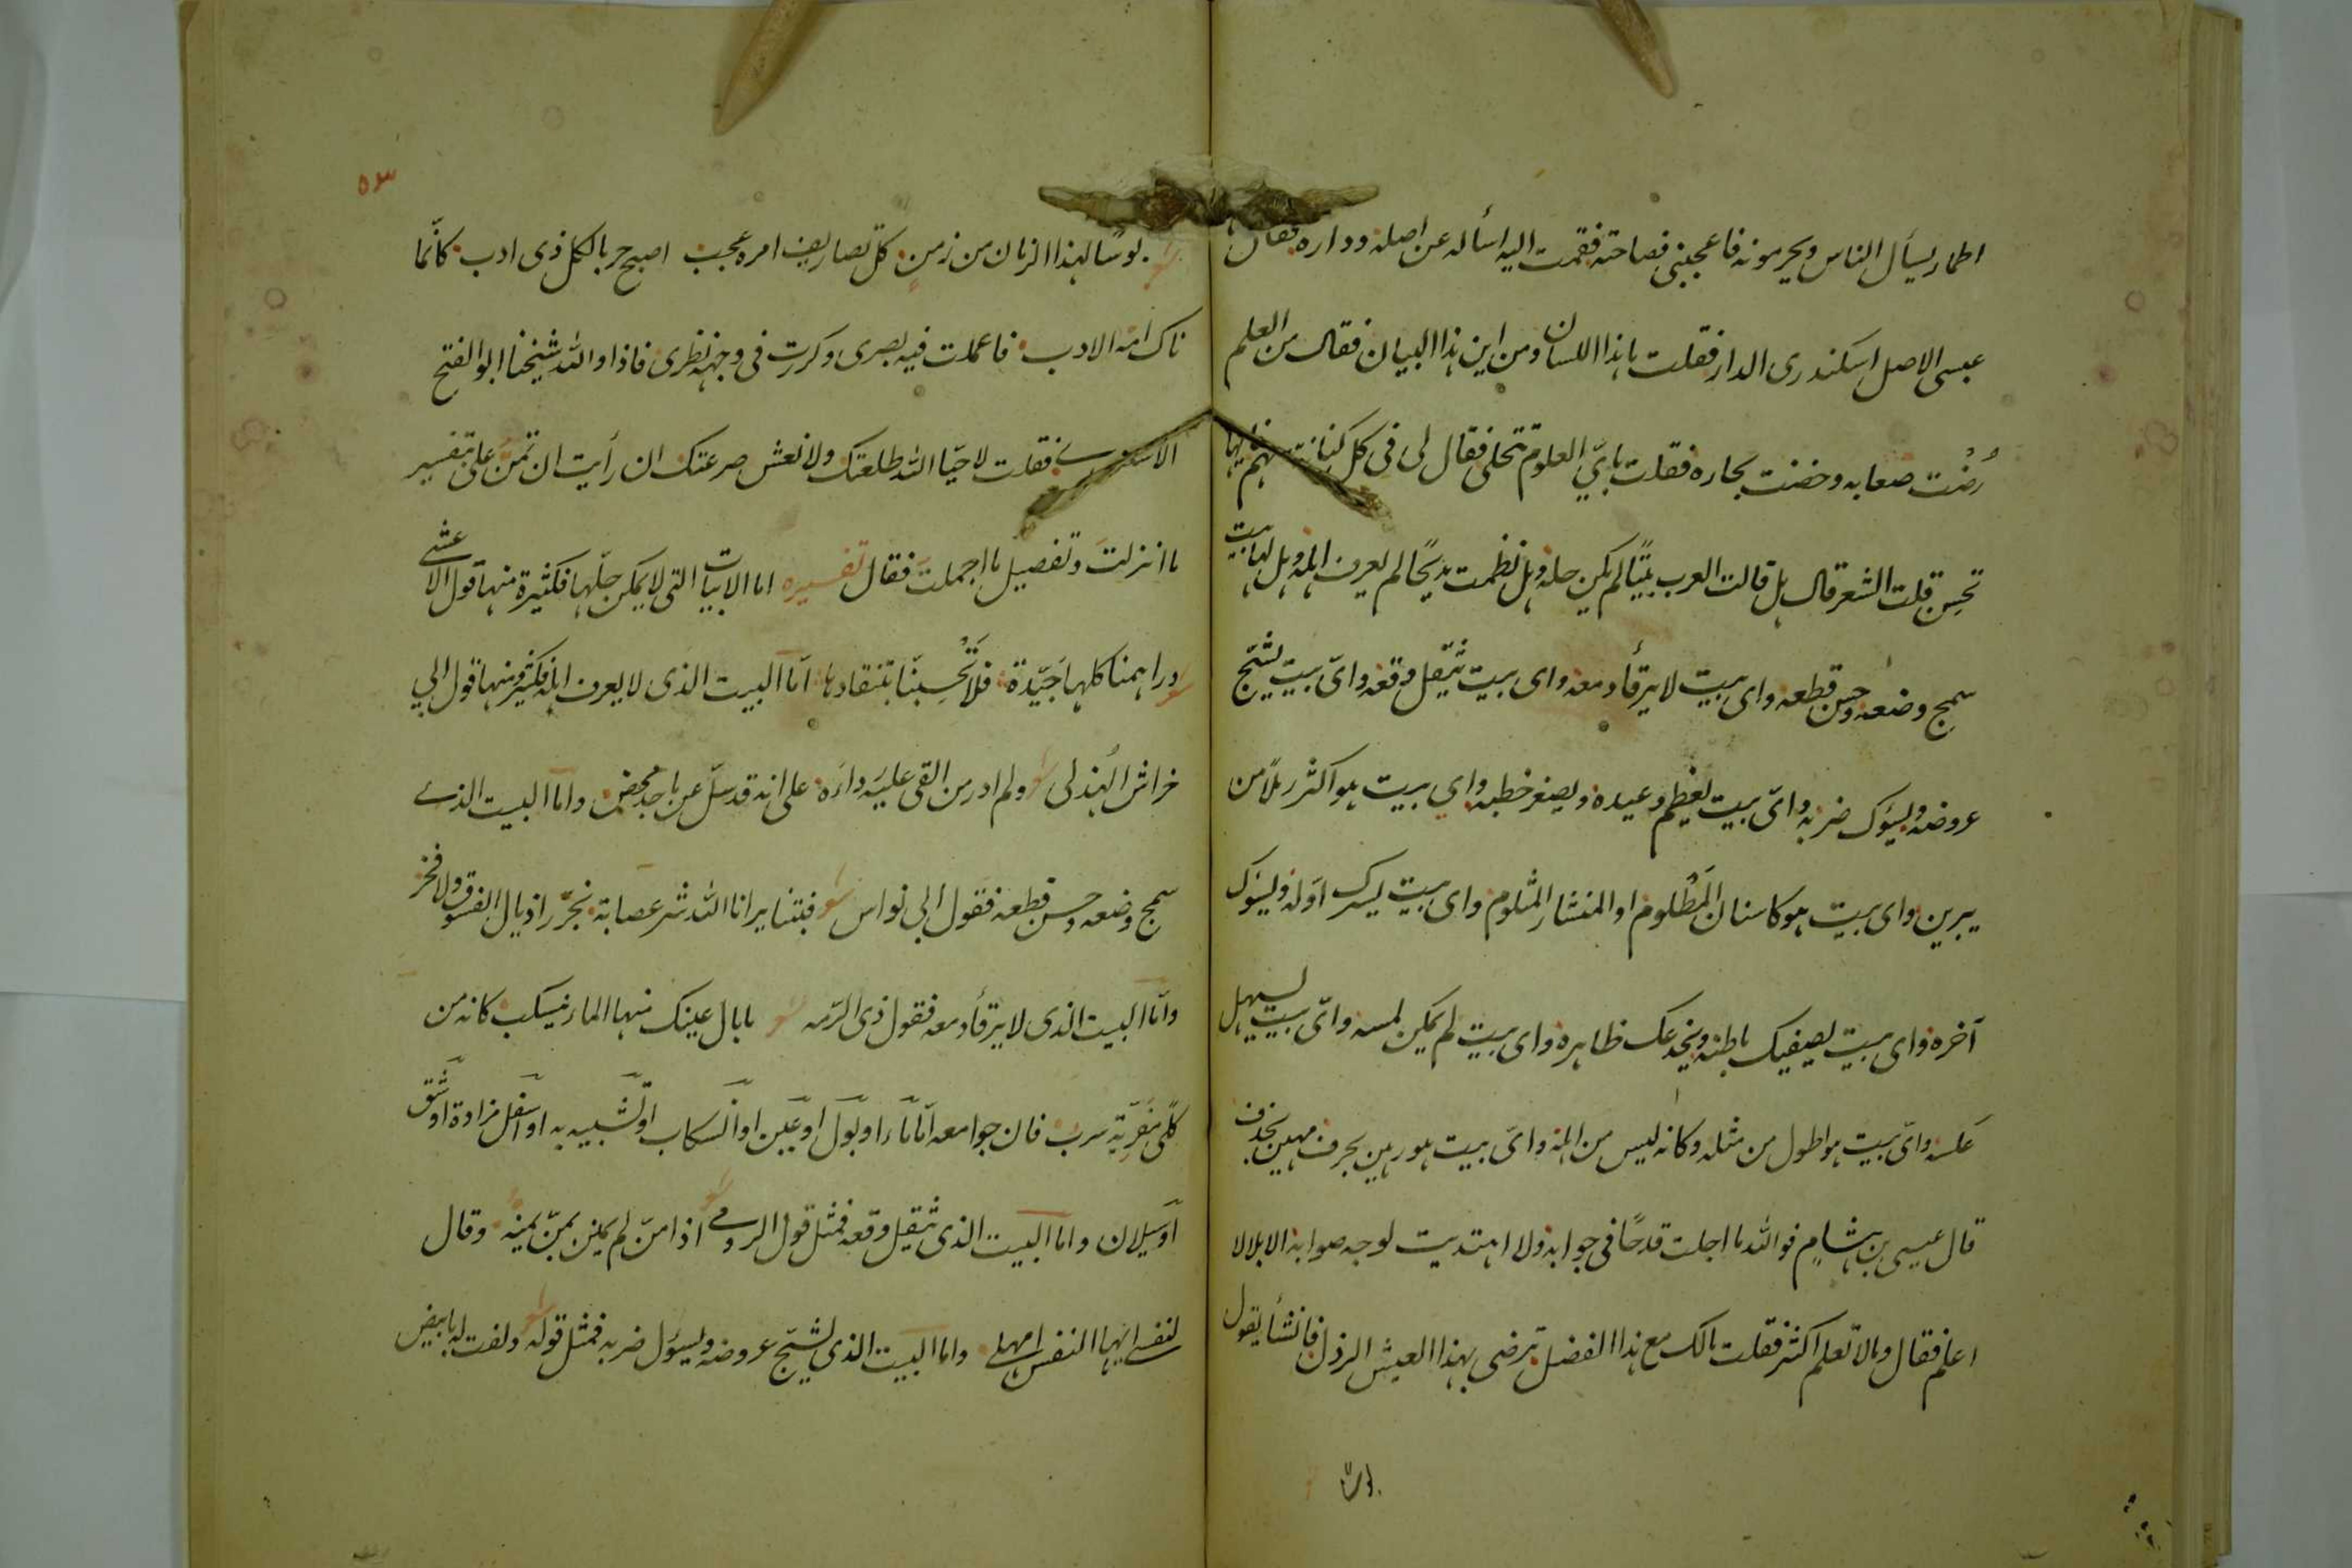 اطمار يسأل الناس ويحرمونه فاعجبنى فصاحته فقمت اليه اسأله عن اصله وداره فقال
عبسى الاصل اسكندرى الدار فقلت ما هذا اللسان ومن اين هذا البيان فقال من العلم
رُضْت صعابه وخضت بحاره فقلت باىّ العلوم تتحلى فقال لى فى كل كنانة سهم فايها
تحسِن قلت الشعر قال هل قالت العرب بيتًا لم يكن حله وهل نظمت مديحًا لم يعرف اهله وهل لها بيت
سمج وضعه وحسن قطعه واى بيت لا يرقأ دمعه واى بيت يثقل وقعه واىّ بيت يشبّح
عروضه ويسؤك ضربه واىّ بيت يعظم وعيده ويصغر خطبه واي بيت هو اكثر رملًا من
يبرين واى بيت هو كاسنان المَظْلوم او المنشار المثلوم واى بيت يسرك اوله ويسؤك
آخره واى بيت يصفيك باطنه ويخدعك ظاهره واى بيت لم يمكن لمسه واىّ بيت يسهل
عكسه واىّ بيت هو اطول من مثله وكانه ليس من اهله واىّ بيت هو رهين بحرف مهين بحذف
قال عيسى بن هشامٍ فوالله ما اجلت قدحًا فى جوابه ولا اهتديت لوجه صوابه الا بلا لا
اعلم فقال وما لا تعلم اكثر فقلت مالك مع هذا الفضل ترضى بهذا العيش الرذل فانشأ يقول
٥٣
بوسًا لهذا الزمان من زمن كل تصاريف امره عجب اصبح حربا لكل ذى ادب كانّما
ناك امّه الادب فاعملت فيه بصرى وكررت فى وجهه نظرى فاذا والله شيخنا ابو الفتح
الاسكندرى فقلت لا حيّا الله طلعتك ولا نعش صرعتك ان رأيت ان تمنّ علىّ بتفسير
ما انزلتَ وتفصيل ما اجملتَ فقال تفسيره اما الابيات التى لا يمكن حلّها فكثيرة منها قول الاعشى
دراهمنا كلها جَيّدة فلا تَحْسِبنّا بتنقادها امّا البيت الذى لا يعرف اهله فكثير منها قول ابي
خراش الهذلى ولم ادر من القى عليَه رداءَه على انه قد سلّ عن ماجد محض واما البيت الذى
سمج وضعه وحسن قطعه فقول ابي نواس فبتنا يرانا الله شر عصابة نجرّر اذيال الفسوق ولا فخر
وامّا البيت الذى لا يرقأ دمعه فقول ذى الرّمه ما بال عينك منها الماء ينسكب كانه من
كُلًى مفَرِيّة سرب فان جوامعه امّا ماء او بول او عين او انسكاب او تشبيه به او اسفل مزادة او شق
او سيلان واما البيت الذى يثقل وقعه فمثل قول الرومى اذا منّ لم يمنن بمنّ يمنه وقال
لنفسى ايها النفس امهلى واما البيت الذى يشبّح عروضه ويسؤل ضربه فمثل قوله دلفت له بابيض